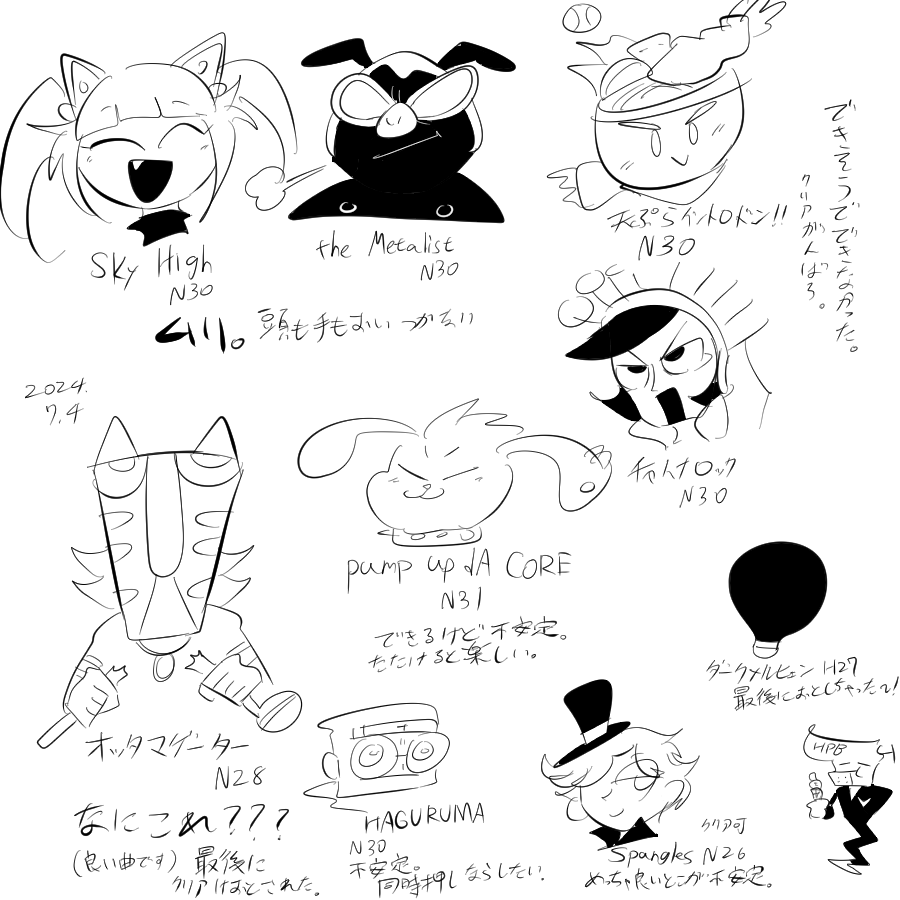 Sky High
N30
the Metalist
N30
ムリ。頭も手もおいつかない
天ぷらイントロドン!!
N30
できそうでできなかった。
クリアがんばろ。
2024.
7.4
チャイナロック
N30
pump up dA CORE
N31
できるけど不安定。
たたけると楽しい。
オッタマゲーター
N28
なにこれ???
(良い曲です)
最後に
クリアはおとされた。
HAGURUMA
N30
不安定。
同時押しならしたい.
ダークメルヒェン H27
最後におとしちゃった〜!
HPB
クリア可
Spangles N26
めっちゃ良いとこが不安定。